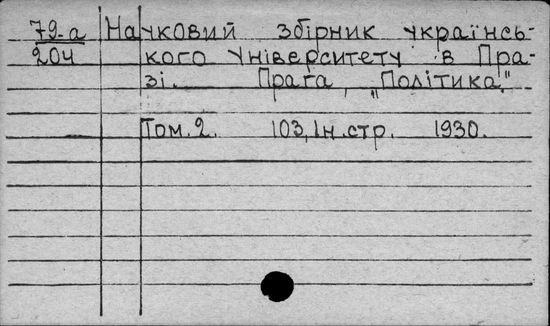 79-а Науковий збірник українсь-
204 кого Університету в Пра-
зі. Прага, „Політика."
Том. 2. 103, Ін. стр. 1930.